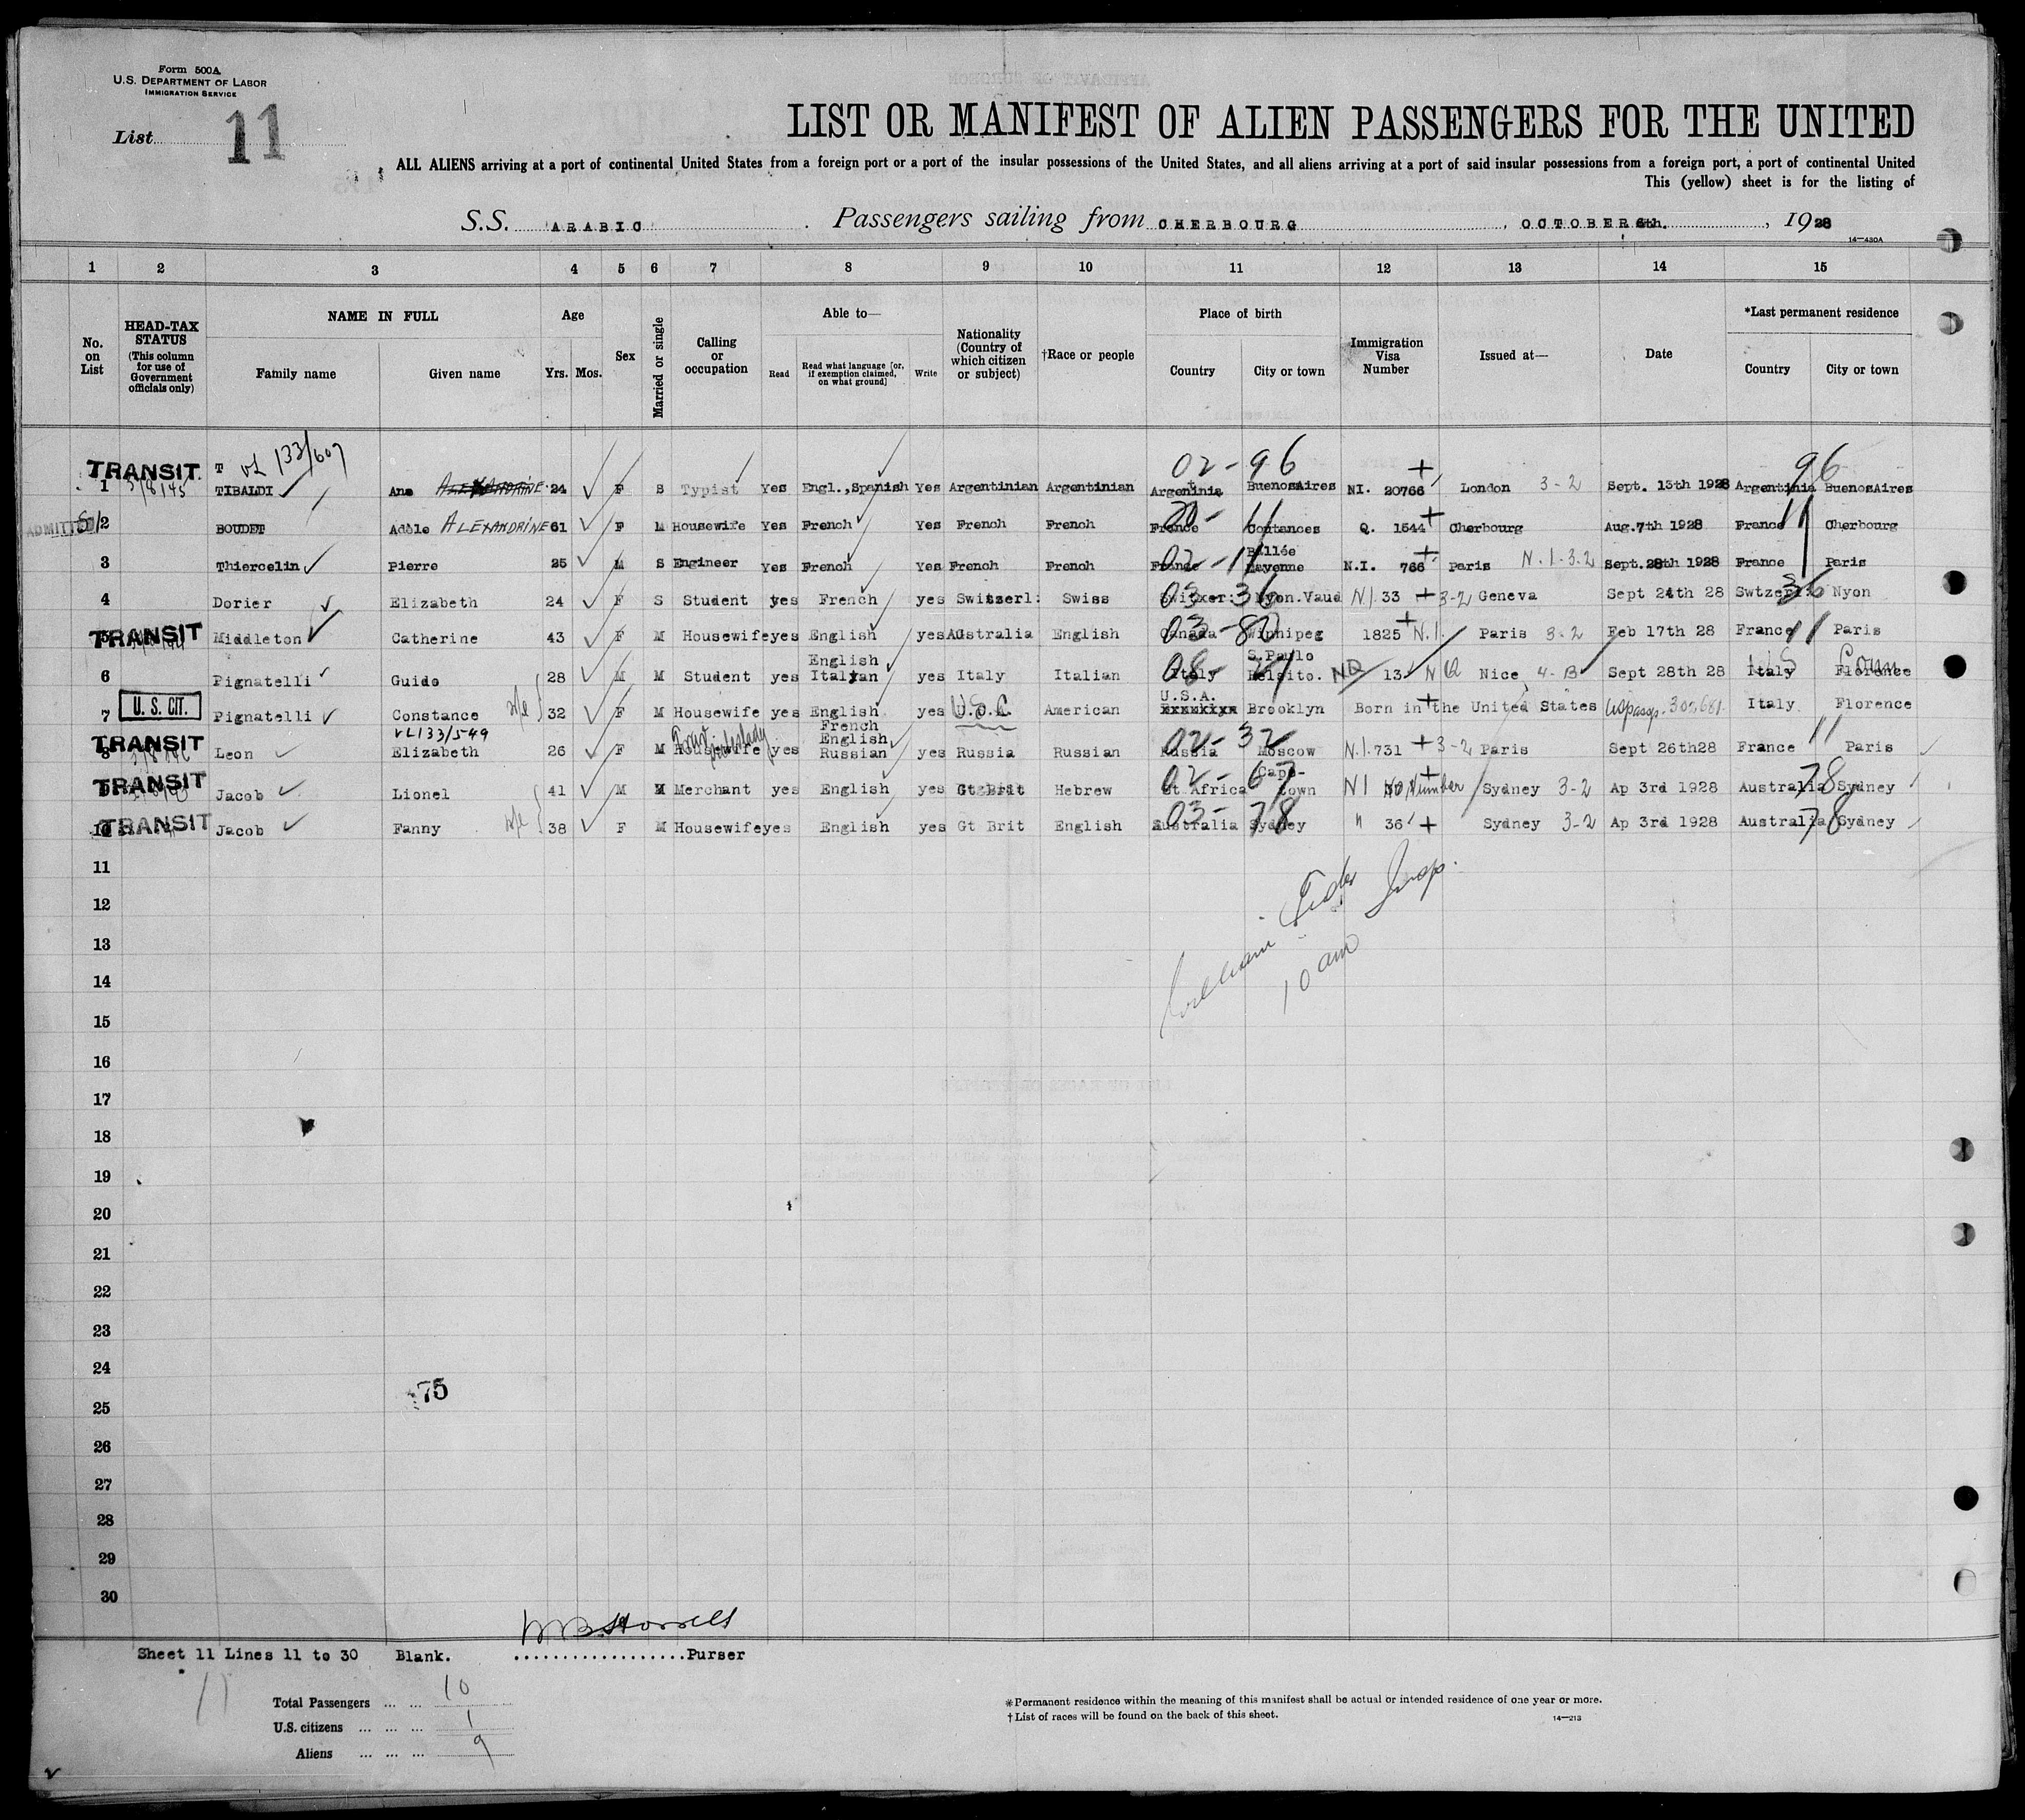 Form 500A
U.S. DEPARTMENT OF LABOR
IMMIGRATION SERVICE
List 11
LIST OR MANIFEST OF ALIEN PASSENGERS FOR THE UNITED
ALL ALIENS arriving at a port of continental United States from a foreign port or a port of the insular possessions of the United States, and all aliens arriving at a port of said insular possessions from a foreign port, a port of continental United
This (yellow) sheet is for the listing of
S.S. ARABIC. Passengers sailing from CHERBOURG, OCTOBER 6th., 1928
14-430A
1 2 3 4 5 6 7 8 9 10 11 12 13 14 15
No. on List
HEAD-TAX STATUS (This column for use of Government officials only)
NAME IN FULL Family name Given name
Age Yrs. Mos.
Sex
Married or single
Calling or occupation
Able to— Read Read what language [or, if exemption claimed, on what ground] Write
Nationality (Country of which citizen or subject)
†Race or people
Place of birth Country City or town
Immigration Visa Number
Issued at—
Date
*Last permanent residence Country City or town
T VL 133/607 02-96 + 96
TRANSIT 1 TIBALDI Ana ALEXANDRINE 24 F S Typist Yes Engl.,Spanish Yes Argentinian Argentinian Argentinia BuenosAires NI. 20766 London 3-2 Sept. 13th 1928 Argentinia BuenosAires
ADMITTED 2 BOUDET Adèle ALEXANDRINE 61 F M Housewife Yes French Yes French French France Coutances Q. 1544 + Cherbourg Aug.7th 1928 France 11 Cherbourg
3 Thiercelin Pierre 25 M S Engineer Yes French Yes French French France 02-11 Ballée Mayenne N.I. 766 + Paris N.I-3-2 Sept.28th 1928 France Paris
4 Dorier Elizabeth 24 F S Student yes French yes Switzerl: Swiss Switzer: 03-36 Nyon.Vaud N.I 33 + 3-2 Geneva Sept 24th 28 Swtzerl: 36 Nyon
TRANSIT 5 Middleton Catherine 43 F M Housewife yes English yes Australia English Canada 03-80 Winnipeg 1825 + N.I. Paris 3-2 Feb 17th 28 France 11 Paris
6 Pignatelli Guido 28 M M Student yes English Italian yes Italy Italian Italy 08- S.Paulo Belsito. NQ 13 NQ Nice 4-B Sept 28th 28 Italy US Florence Conn
U. S. CIT. 7 Pignatelli Constance 32 F M Housewife yes English yes U.S.C. American U.S.A. Brooklyn Born in the United States USpassp. Italy Florence
VL133/549
TRANSIT 8 Leon Elizabeth 26 F M Housewife yes French English Russian yes Russia Russian Russia 02-32 Moscow N.I. 731 + 3-2 Paris Sept 26th28 France 11 Paris
TRANSIT 9 Jacob Lionel 41 M M Merchant yes English yes Gt Brit Hebrew St Africa 02-67 Cape-town NI No Number + Sydney 3-2 Ap 3rd 1928 Australia 78 Sydney
TRANSIT 10 Jacob Fanny 38 F M Housewife yes English yes Gt Brit English Australia 03-78 Sydney " 36 + Sydney 3-2 Ap 3rd 1928 Australia 78 Sydney
11
12
13
14
10 am
15
16
17
18
19
20
21
22
23
24
75
25
26
27
28
29
30
Sheet 11 Lines 11 to 30 Blank. ..................Purser
11
Total Passengers ... ... 10
U.S. citizens ... ... ... 1
Aliens ... ... ... 9
*Permanent residence within the meaning of this manifest shall be actual or intended residence of one year or more.
†List of races will be found on the back of this sheet.
14-213